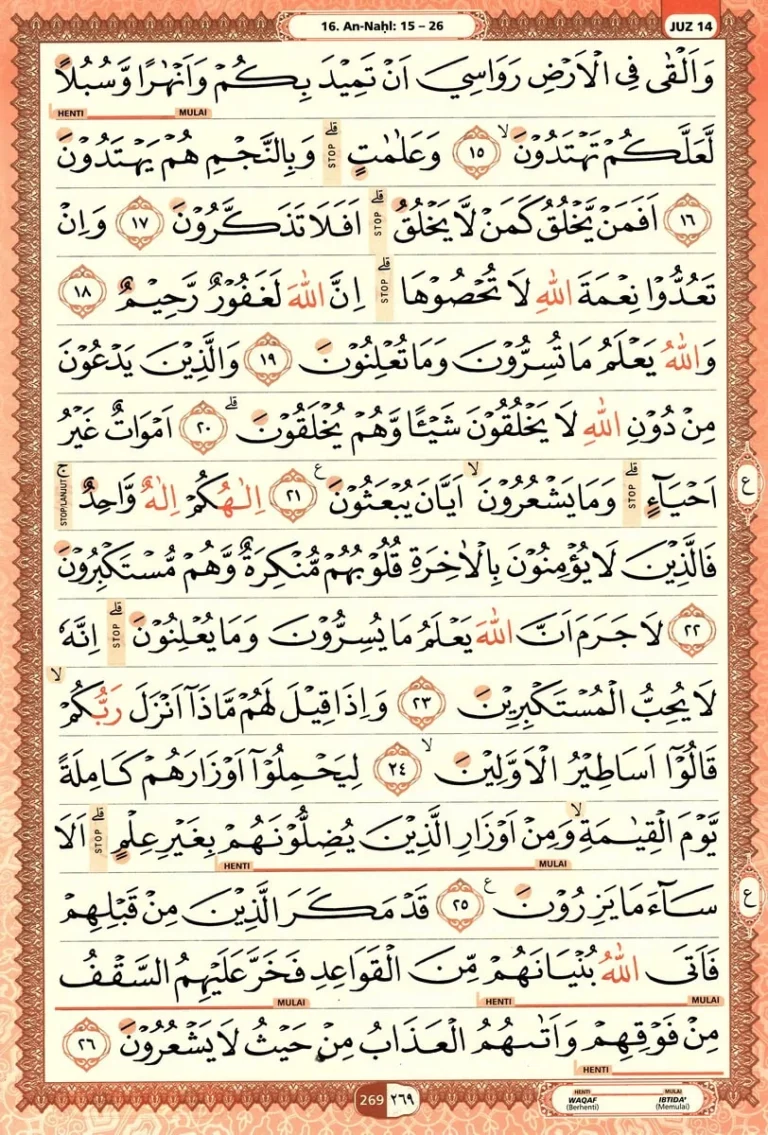 16. An-Naḥl: 15 – 26
JUZ 14
وَاَلْقٰى فِى الْاَرْضِ رَوَاسِيَ اَنْ تَمِيْدَ بِكُمْ وَاَنْهٰرًا وَّسُبُلًا
HENTI MULAI
لَّعَلَّكُمْ تَهْتَدُوْنَۙ ١٥ وَعَلٰمٰتٍۗ STOP وَبِالنَّجْمِ هُمْ يَهْتَدُوْنَ
١٦ اَفَمَنْ يَّخْلُقُ كَمَنْ لَّا يَخْلُقُۗ STOP اَفَلَا تَذَكَّرُوْنَ ١٧ وَاِنْ
تَعُدُّوْا نِعْمَةَ اللّٰهِ لَا تُحْصُوْهَاۗ STOP اِنَّ اللّٰهَ لَغَفُوْرٌ رَّحِيْمٌ ١٨
وَاللّٰهُ يَعْلَمُ مَا تُسِرُّوْنَ وَمَا تُعْلِنُوْنَ ١٩ وَالَّذِيْنَ يَدْعُوْنَ
مِنْ دُوْنِ اللّٰهِ لَا يَخْلُقُوْنَ شَيْـًٔا وَّهُمْ يُخْلَقُوْنَۗ ٢٠ اَمْوَاتٌ غَيْرُ
ع
اَحْيَاۤءٍۗ STOP وَمَا يَشْعُرُوْنَۙ اَيَّانَ يُبْعَثُوْنَ ࣖ ٢١ اِلٰهُكُمْ اِلٰهٌ وَّاحِدٌۚ STOP/LANJUT
فَالَّذِيْنَ لَا يُؤْمِنُوْنَ بِالْاٰخِرَةِ قُلُوْبُهُمْ مُّنْكِرَةٌ وَّهُمْ مُّسْتَكْبِرُوْنَ
٢٢ لَا جَرَمَ اَنَّ اللّٰهَ يَعْلَمُ مَا يُسِرُّوْنَ وَمَا يُعْلِنُوْنَۗ STOP اِنَّهٗ
لَا يُحِبُّ الْمُسْتَكْبِرِيْنَ ٢٣ وَاِذَا قِيْلَ لَهُمْ مَّاذَآ اَنْزَلَ رَبُّكُمْۙ
قَالُوْٓا اَسَاطِيْرُ الْاَوَّلِيْنَۙ ٢٤ لِيَحْمِلُوْٓا اَوْزَارَهُمْ كَامِلَةً
يَّوْمَ الْقِيٰمَةِۙ وَمِنْ اَوْزَارِ الَّذِيْنَ يُضِلُّوْنَهُمْ بِغَيْرِ عِلْمٍۗ STOP اَلَا
HENTI MULAI
سَاۤءَ مَا يَزِرُوْنَ ࣖ ٢٥ قَدْ مَكَرَ الَّذِيْنَ مِنْ قَبْلِهِمْ
ع
فَاَتَى اللّٰهُ بُنْيَانَهُمْ مِّنَ الْقَوَاعِدِ فَخَرَّ عَلَيْهِمُ السَّقْفُ
MULAI HENTI MULAI
مِنْ فَوْقِهِمْ وَاَتٰىهُمُ الْعَذَابُ مِنْ حَيْثُ لَا يَشْعُرُوْنَ ٢٦
HENTI
269 ٢٦٩
HENTI MULAI
WAQAF IBTIDA'
(Berhenti) (Memulai)